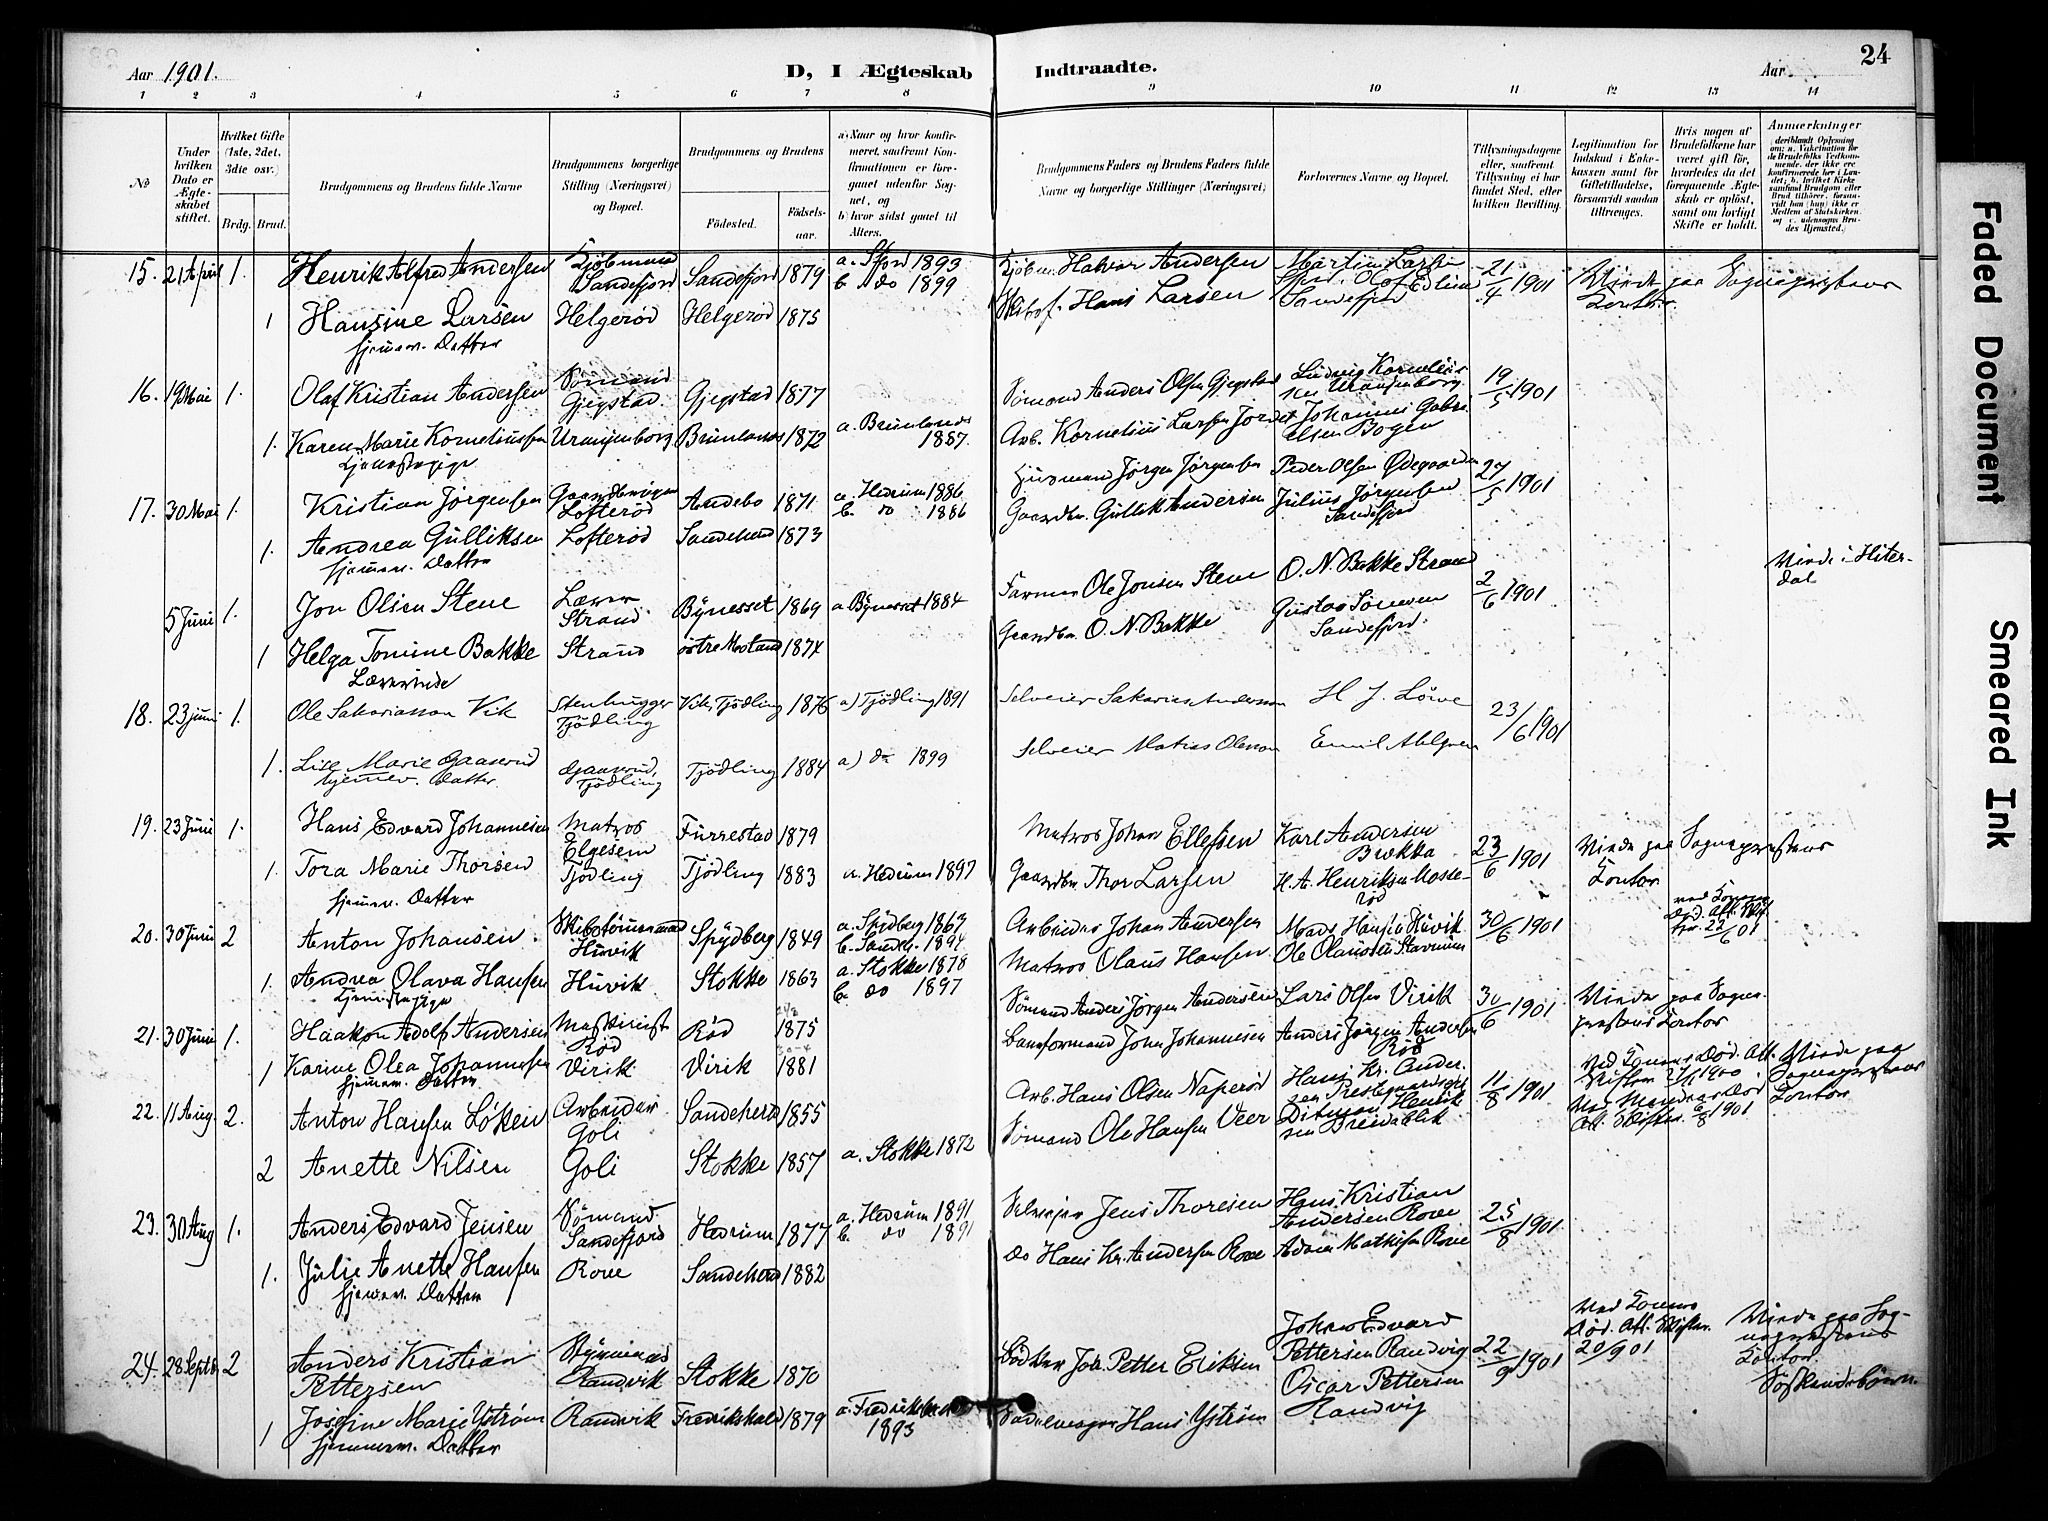 Aar 1901.
D, I Ægteskab
Indtraadte.
Aar
24
1 2 3 4 5 6 7 8 9 10 11 12 13 14
No
Under hvilken Dato er Ægteskabet stiftet.
Hvilket Gifte (1ste, 2det, 3die osv.)
Brdg. Brud.
Brudgommens og Brudens fulde Navne
Brudgommens borgerlige Stilling (Næringsvei) og Bopæl.
Brudgommens og Brudens
Födested.
Födselsaar.
a) Naar og hvor konfirmeret, saafremt Konfirmationen er foregaaet udenfor Sognet, og
b) hvor sidst gaaet til Alters.
Brudgommens Faders og Brudens Faders fulde Navne og borgerlige Stillinger (Næringsvei)
Forlovernes Navne og Bopæl.
Tillysningsdagene eller, saafremt Tillysning ei har fundet Sted, efter hvilken Bevilling.
Legitimation for Indskud i Enkekassen samt for Giftetilladelse, forsaavidt saadan tiltrænges.
Hvis nogen af Brudefolkene har været gift för, hvorledes da det foregaaende Ægteskab er oplöst, samt om lovligt Skifte er holdt.
Anmærkninger
15. 21 April 1. Henrik Alfred Andersen Sandefjord Sandefjord 1879 a. Sfjord 1893 b. do 1899 Halvor Andersen Martin Larsen Sandefjord 21/4 1901 Viede paa Sogneprestens Kontor.
1 Hansine Larsen Helgerød Helgerød 1875 Hans Larsen
hjemmev. Datter
16. 19 Mai 1. Olaf Kristian Andersen Sømand Gjegstad Gjegstad 1877 Sømand Anders Olsen Gjegstad 19/5 1901
1. Karen Marie Korneliussen Uranienborg Brunlanes 1872 a. Brunlanes 1887. Arb. Kornelius Larsen Jordet Johannes Gabrielsen Bogen
Tjenestepige
17. 30 Mai 1. Kristian Jörgensen Gaardbruger Lofterød Andebo 1871 a. Hedrum 1886 b. do 1886 Husmand Jörgen Jörgensen Peder Olsen Ødegaarden 27/5 1901
1. Andrea Gulliksen Lofterød Sandeherred 1873 Gaardbr. Gullik Andersen Julius Jørgensen Sandefjord
hjemmev. Datter
5 Juni 1. Jon Olsen Stene Lærer Strand Bynesset 1869 a Bynesset 1884 Farmer Ole Jonsen Stene O. N. Bakke Strand 2/6 1901 Viede i Hiterdal
1 Helga Tomine Bakke Strand 1874 Gaardbr. O. N. Bakke Sandefjord.
Lærerinde
18. 23 juni 1. Ole Sakariasson Vik Stenhugger Tjödling Vik, Tjödling 1876 a) Tjödling 1891 Selveier Sakarias Andersson H J. Löwe 23/6 1901
1. Lise Marie Gaaserud Gaaserud, Tjödling Tjödling 1884 a) do 1899 Selveier Matias Olsson Emil Ahlgren
hjemmev. Datter.
19. 23 Juni 1. Hans Edvard Johannesen Matros Elgesem Furrestad 1879 Matros Johan Ellefsen Karl Andersen Brekka 23/6 1901 Viede paa Sogneprestens Kontor
1. Tora Marie Thorsen Tjödling Tjödling 1883 a. Hedrum 1897 Gaardbr Thor Larsen H. A. Henriksen Mosserød
hjemmev. Datter
20. 30 Juni 2 Anton Johansen. Skibstømmermand Huvik Spydberg 1849 a. Spydberg 1863 b. Sandeh. 1894 Arbeider Johan Andersen Mads Hansen Huvik 30/6 1901
1. Andrea Olava Hansen Huvik Stokke 1863 a. Stokke 1878 b. do 1897 Matros Olaus Hansen Ole Olaussen Stavnum
Tjenestepige
21. 30 Juni 1. Haakon Adolf Andersen Maskinist Rød Rød 1875 Sømand Anders Jörgen Andersen Lars Olsen Virik 30/6 1901 Viede paa Sogneprestens Kontor
1 Karine Olea Johannesen Virik Virik 1881 John Johannesen Anders Jörgen Andersen Rød
hjemmev. Datter
22. 11 Aug. 2. Anton Hansen Løken Arbeider Goli Sandeherred 1855 Arb. Hans Olsen Naperød Hans Kr. Andersen 11/8 1901 Viede paa Sogneprestens Kontor
2 Anette Nilsen Goli Stokke 1857 a. Stokke 1872 Sømand Ole Hansen Veer Ditman Henriksen Breidablik
23. 30 Aug 1. Anders Edvard Jensen Sømand Sandefjord Hedrum 1877 a. Hedrum 1891 b. do 1891 Selveier Jens Thoresen Hans Kristian Andersen Rove 25/8 1901
1. Julie Anette Hansen Rove Sandeherred 1882 do Hans Kr. Andersen Rove Adam Mathisen Rove
hjemmev. Datter
24. 28 Septb. 2 Anders Kristian Pettersen Ranvik Stokke 1870 Petter Eriksen Johan Edvard Pettersen Randvig 22/9 1901 Ved Konens Död. Att. Skiften. 20/9 01 Viede paa Sogneprestens Kontor. Søskendebörn.
1 Josefine Marie Ystrøm Randvik Fredrikshald 1879 a. Fredrikshald 1893 Hans Ystrøm Oscar Pettersen Randvig
hjemmev. Datter
Faded Document
Smeared Ink